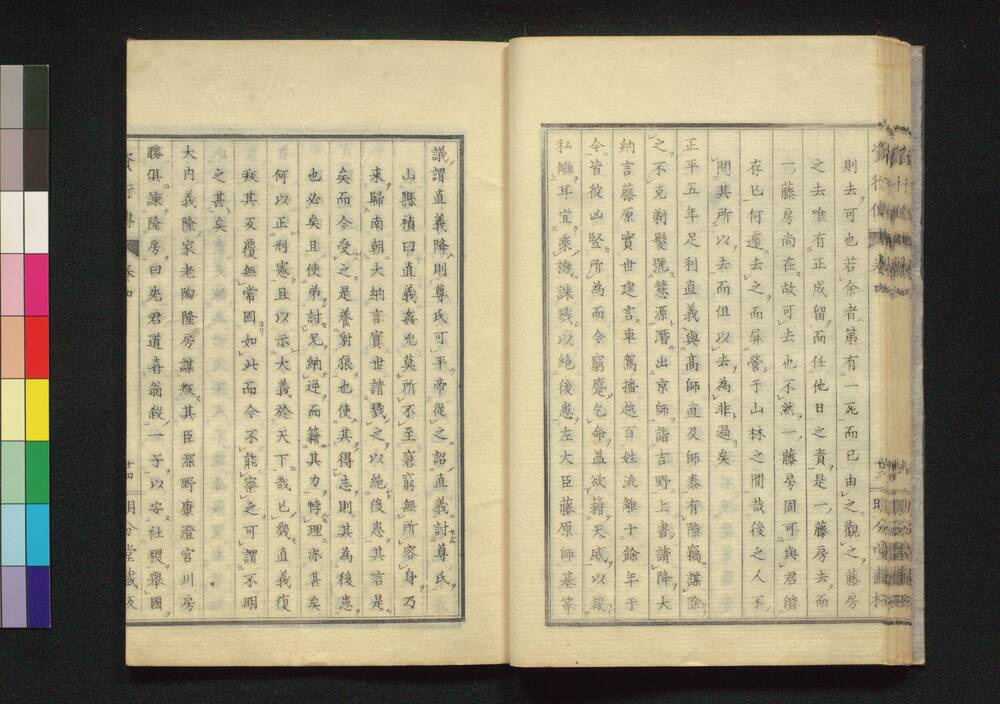 則去可也若余者第有一死而已由之觀之藤房
之去唯有正成留而任他日之責是一藤房去而
一藤房尚在故可去也不然一藤房固可與君偕
存亡何遽去之而屏營于山林之間哉後之人不
問其所以去而但以去為非過矣
正平五年足利直義與髙師直及師泰有隙竊謀除
之不克剃髮號慧源潛出京師詣吉野上書請降大
納言藤原實世建言車駕播越百姓流離十餘年于
今皆彼凶竪所為而今窮蹙乞命蓋欲籍天威以報
私讎耳宜乘機誅戮以絶後患左大臣藤原師基等
議謂直義降則尊氏可平帝從之詔直義討尊氏
山縣禎曰直義姦兇莫所不至窘窮無所容身乃
来歸南朝大納言實世請戮之以絶後患其言是
矣而今受之是養豺狼也使其得志則其為後患
也必矣且使弟討兄納逆而籍其力悖理亦甚矣
何以正刑憲且以示大義於天下哉也幾直義復
叛其反覆無常固如此而今不能察之可謂不明
之甚矣
大内義隆家老陶隆房謀叛其臣深野康澄宮川房
勝俱諫隆房曰先君道喜翁殺一子以安社稷擧國
十四 明分堂藏板